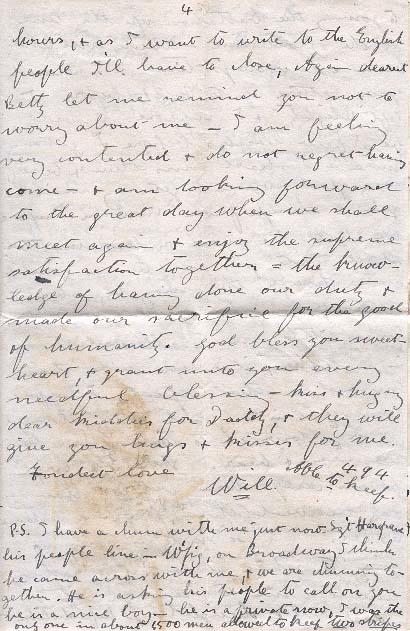 4
hours, & as I want to write to the English
people I'll have to close, Again dearest
Betty let me remind you not to
worry about me – I am feeling
very contented & do not regret having
come – & am looking forward
to the great day when we shall
meet again & enjoy the supreme
satisfaction together – the know-
ledge of having done our duty &
made our sacrifice for the good
of humanity. God bless you sweet-
heart, & grant unto you every
needful blessing – kiss & hug my
dear kiddies for Daddy, & they will
give you hugs & kisses for me.
Fondest love
Will.
P.S. I have a chum with me just now Sgt Hargrave &
his people live in Wpg, on Broadway I think
he came across with me, & we are chumming to-
gether. He is asking his people to call on you
he is a nice boy – he is a private now, I was the
only one in about 1500 men allowed to keep two stripes